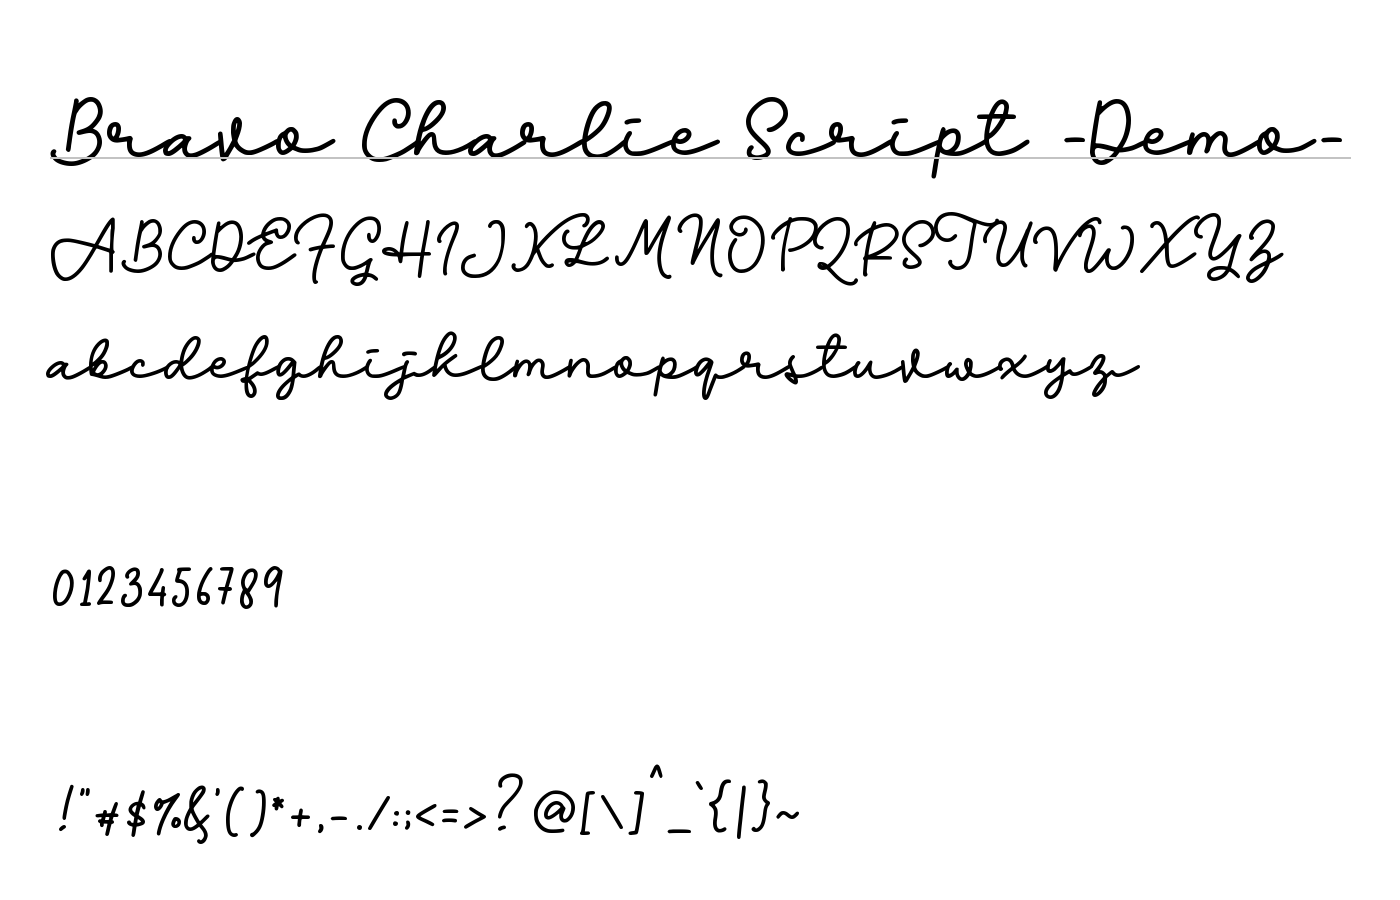 Bravo Charlie Script -Demo-
ABCDEFGHIJKLMNOPQRSTUVWXYZ
abcdefghijklmnopqrstuvwxyz
0123456789
!"#$%&'()*+,-./:;<=>?@[\]^_`{|}~